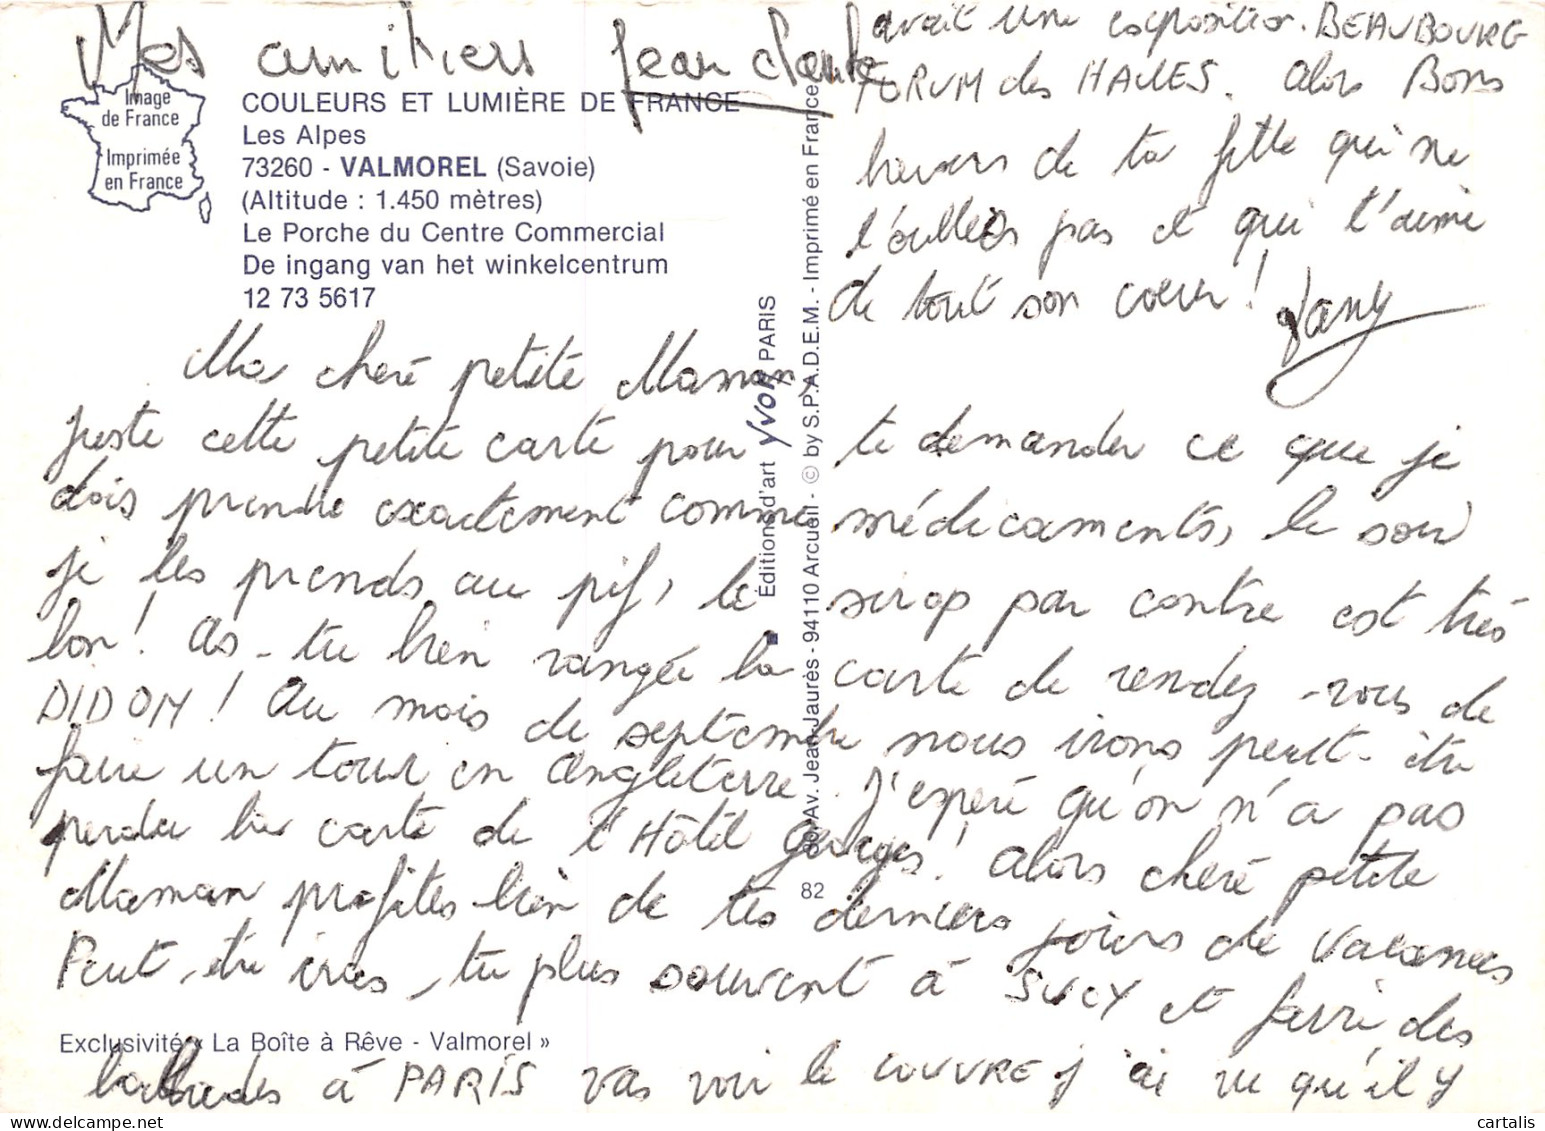 Mes amitiers Jean Claude
Image
de France
Imprimée
en France
COULEURS ET LUMIÈRE DE FRANCE
Les Alpes
73260 - VALMOREL (Savoie)
(Altitude : 1.450 mètres)
Le Porche du Centre Commercial
De ingang van het winkelcentrum
12 73 5617
Ma cheré petite Maman,
juste cette petite carte pour te demander ce que je
dois prendre exactement comme médicaments, le soir
je les prends au pif, le sirop par contre est très
bon! As-tu bien rangée la carte de rendez-vous de
DIDON! Au mois de septembre nous irons peut-être
faire un tour en Angleterre. J'esperé qu'on n'a pas
perdu la carte de l'Hôtel Georges! Alors cheré petite
Maman profites bien de tes derniers jours de vacances
Peut-être iras-tu plus souvent à SUCY et faire des
ballades à PARIS vas voir le LOUVRE j'ai vu qu'il y
avait une exposition. BEAUBOURG
FORUM des HALLES. Alors Bons
baisers de ta fille qui ne
t'oublies pas et qui t'aime
de tout son coeur! Jany
Éditions d'art YVON PARIS
Av. Jean-Jaurès - 94110 Arcueil - © by S.P.A.D.E.M. - Imprimé en France
82
Exclusivité « La Boîte à Rêve - Valmorel »
cartalis